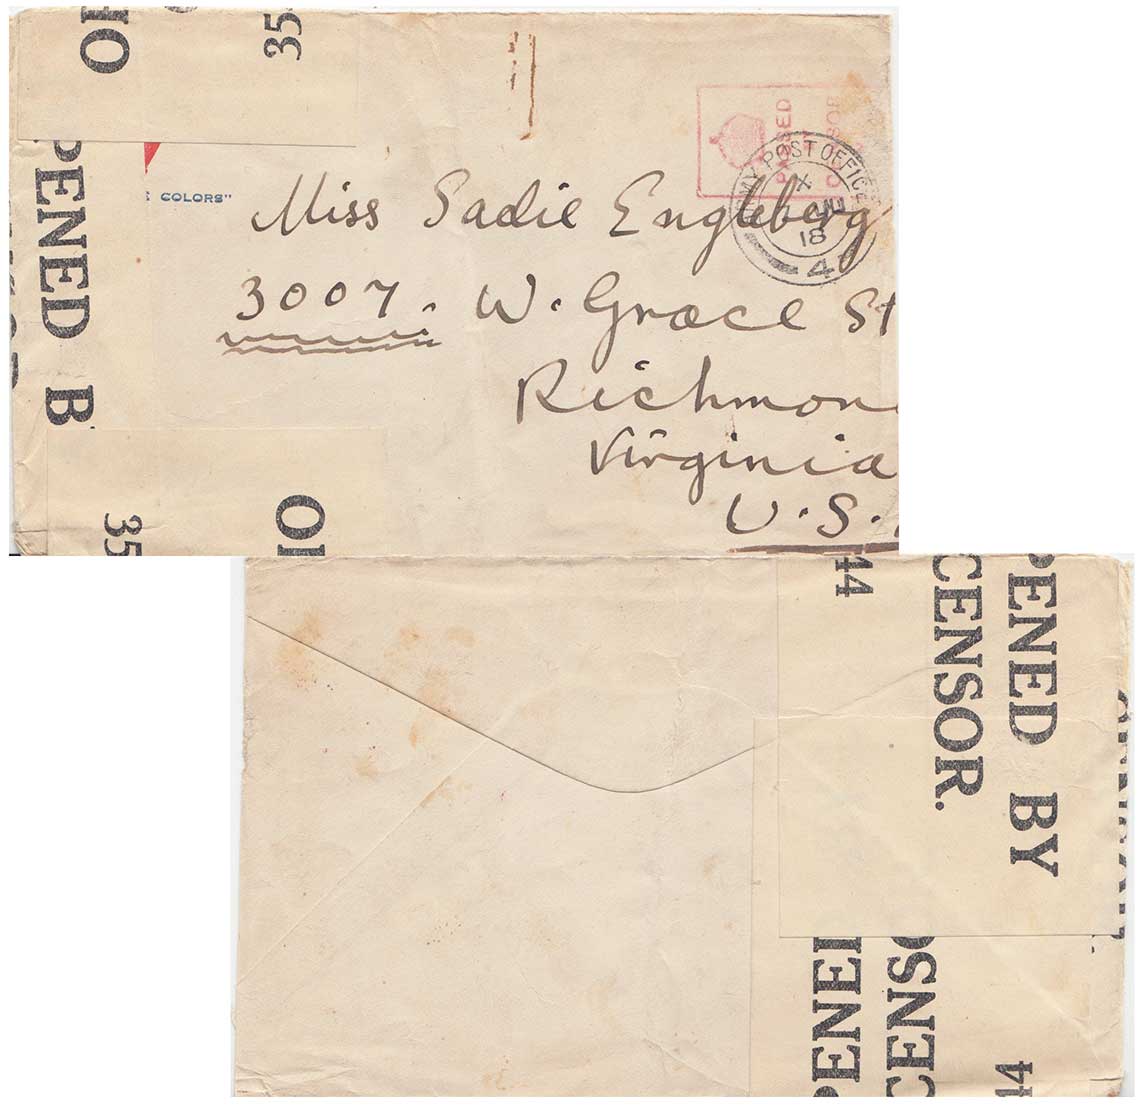 35
PENED B
COLORS"
PASSED
POST OFFICE
X
18
4
Miss Sadie Engleberg
3007. W. Grace St
Richmon
Virginia
U.S.
35
44
PENED BY
CENSOR.
PENE
CENSO
44